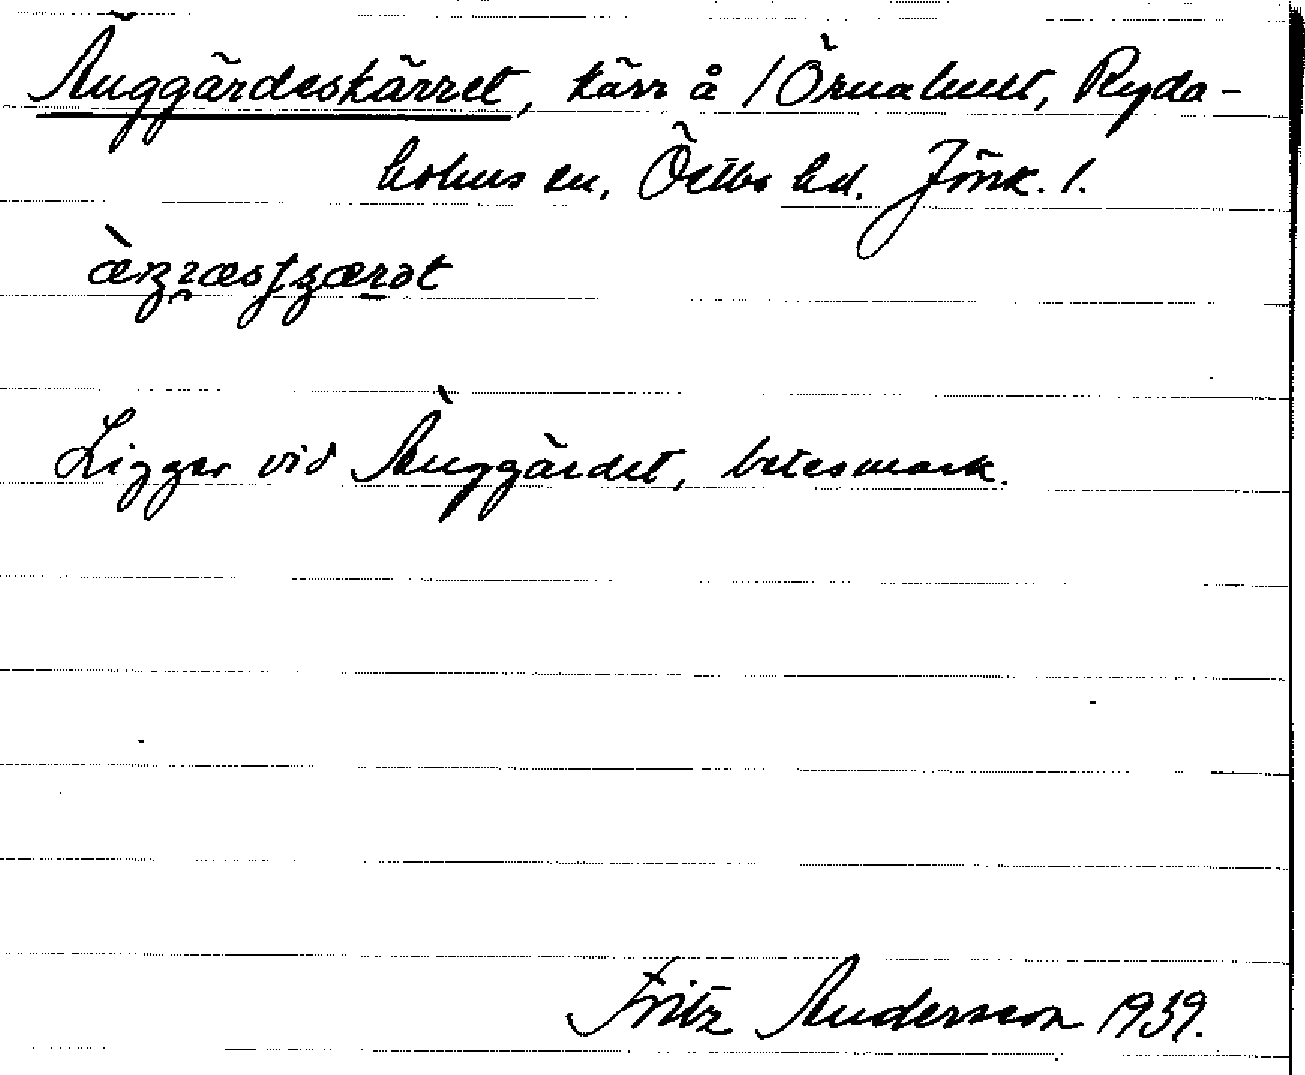 Änggärdeskärret, kärr å 1 Örnahult, Ryda-
holms sn, Östbo hd. Jönk. l.
Ligger vid Änggärdet, betesmark.
Fritz Andersson 1939.